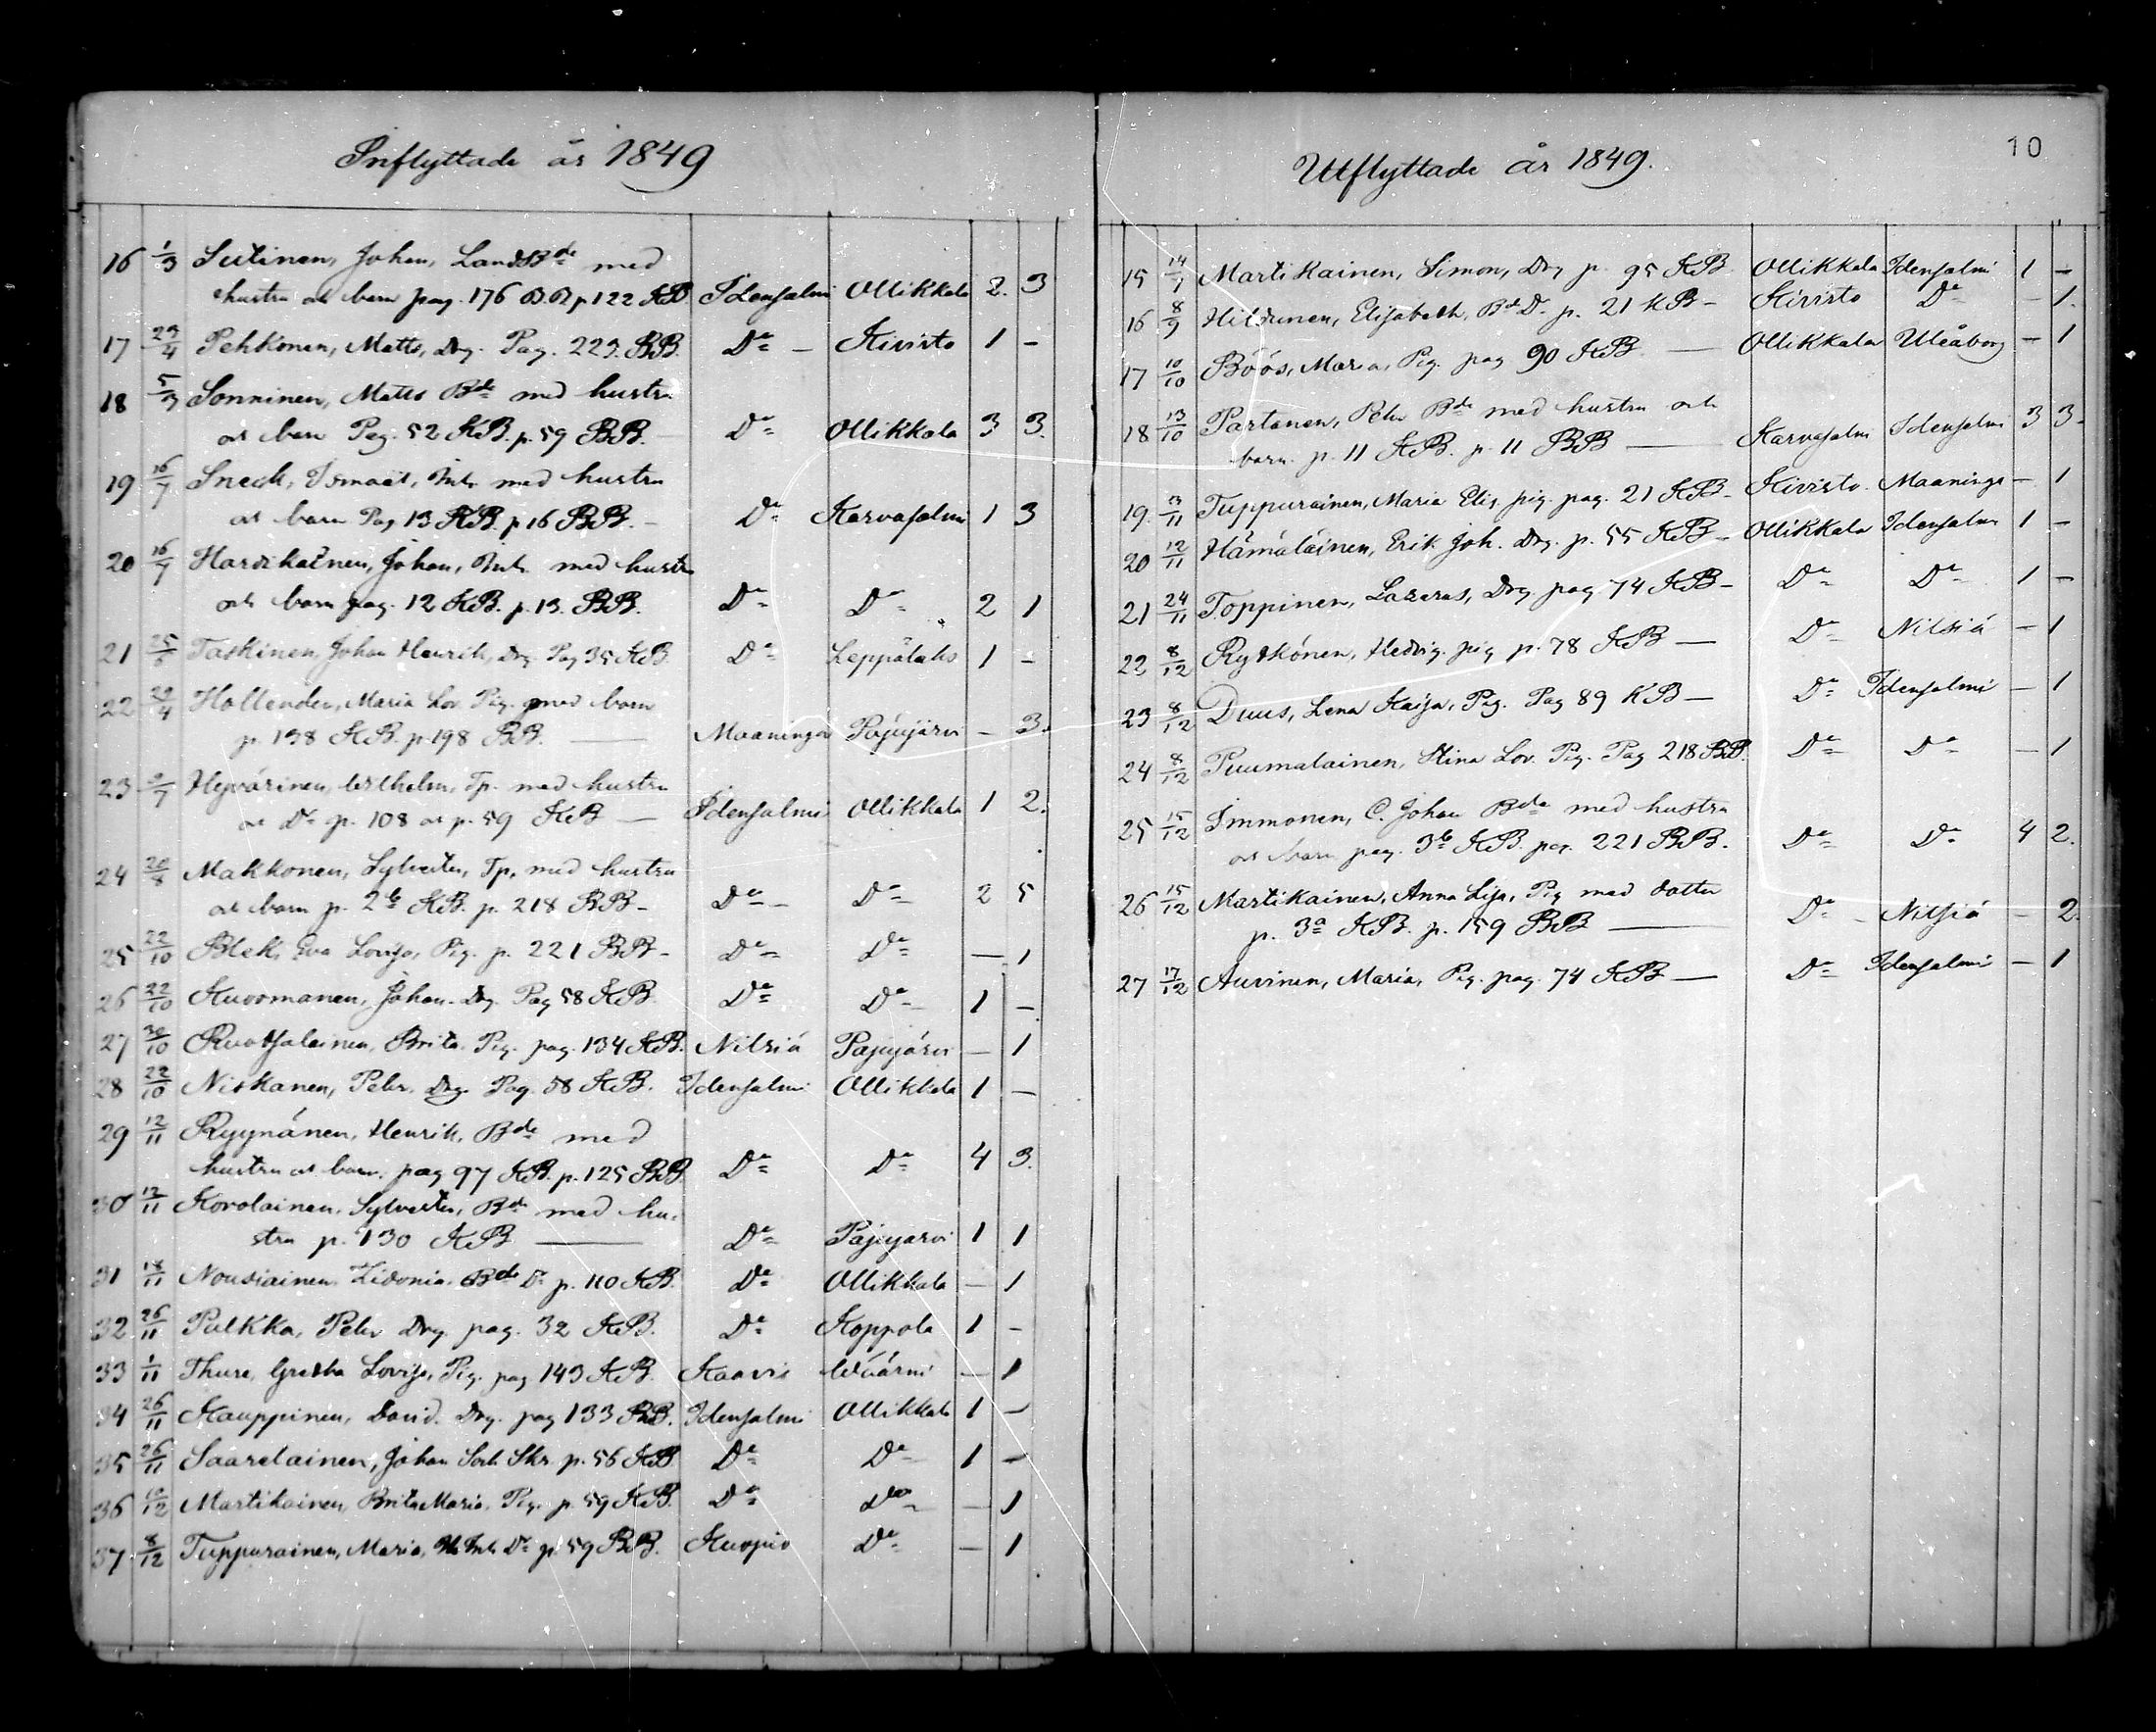 Inflyttade år 1849
16 1/3 Sutinen, Johan, LandtBde med
hustru och barn pag. 176 BB p 122 KB. Idensalmi Ollikkala 2. 3
17 23/4 Pehkonen, Matts, Drg. Pag. 223. BB. Do – Kivisto 1 –
18 5/3 Sonninen, Matts Bde med hustru
och barn Pag. 52 KB. p. 59 BB. – Do Ollikkala 3 3.
19 16/7 Sneck, Ismaël, Inh. med hustru
och barn Pag 13 KB. p 16 BB. – Do Karvasalmi 1 3
20 16/7 Hardikainen, Johan, Inh. med hustru
och barn pag. 12 KB. p. 13. BB. Do Do 2 1
21 25/6 Taskinen, Johan Henrik, Drg. Pag 35 KB Do Leppälaks 1 –
22 29/4 Hollender, Maria Lov. Pig. med barn
p. 138 KB. p. 198 BB. — Maaninga Pajujärvi – 3.
23 9/7 Hyvärinen, Wilhelm, Tp. med hustru
och Dr p. 108 och p. 59 KB — Idensalmi Ollikkala 1 2.
24 20/8 Makkonen, Sylvester, Tp. med hustru
och barn p. 2b KB. p. 218 BB – Do – Do 2 5
25 22/10 Blek, Eva Lovisa, Pig. p. 221 BB – Do Do — 1
26 22/10 Kuosmanen, Johan. Drg. Pag 58 KB. Do Do 1 –
27 30/10 Ruotsalainen, Brita. Pig. pag. 134 KB. Nilsiä Pajujärvi — 1
28 22/10 Niskanen, Petr. Drg. Pag. 58 KB. Idensalmi Ollikkala 1 —
29 12/11 Ryynänen, Henrik, Bde med
hustru och barn. pag 97 KB. p. 125 BB. Do Do 4 3.
30 12/11 Korolainen. Sylvester, Bde med hu-
stru p. 130 KB — Do Pajujarvi 1 1
31 18/11 Nousiainen. Zidonia. Bde Dr p. 110 KB. Do Ollikkala — 1
32 26/11 Pulkka, Petr Drg. pag. 32 KB. Do Koppola 1 –
33 1/11 Thure, Gretha Lovisa, Pig. pag 143 KB. Kaavi Wäärni — 1
34 26/11 Kauppinen, David. Drg. pag 133 BB. Idensalmi Ollikkala 1 –
35 26/11 Saarelainen, Johan Sock. Skr. p. 56 KB Do Do 1 –
36 10/12 Martikainen, Brita Maria, Pig. p. 59 KB. Do Do — 1
37 8/12 Tuppurainen, Maria, Inh. Dr p. 59 BB. Kuopio Do — 1
10
Utflyttade år 1849.
15 14/7 Martikainen, Simon, Drg p. 95 KB Ollikkala Idensalmi 1 –
16 8/9 Hildunen, Elisabeth, Bde D. p. 21 KB – Kivisto Do – 1.
17 10/10 Böös, Maria, Pig. pag 90 KB. — Ollikkala Uleåborg – 1
18 13/10 Partanen, Petr Bde med hustru och
barn. p. 11 KB. p. 11 BB — Karvasalmi Idensalmi 3 3.
19. 13/11 Tuppurainen, Maria Elis. pig. pag. 21 KB – Kivisto. Maaninga – 1
20 12/11 Hämäläinen, Erik Joh. Drg. p. 55 KB – Ollikkala Idensalmi 1 –
21 24/11 Toppinen, Lazarus, Drg. pag. 74 KB – Do Do 1 –
22 8/12 Rytkönen, Hedvig. pig p. 78 KB — Do Nilsiä – 1
23 8/12 Duus, Lena Kaisa, Pig. Pag 89 KB — Do Idensalmi – 1
24 8/12 Puumalainen, Stina Lov. Pig. Pag 218 BB. Do Do – 1
25 15/12 Immonen, C. Johan Bde med hustru
och barn pag. 3b KB. pag. 221 BB. Do Do 4 2.
26 15/12 Martikainen, Anna Lisa, Pig med dotter
p. 3a KB. p. 159 BB — Do Nilsiä – 2.
27 17/12 Auvinen, Maria, Pig. pag. 74 KB — Do Idensalmi – 1